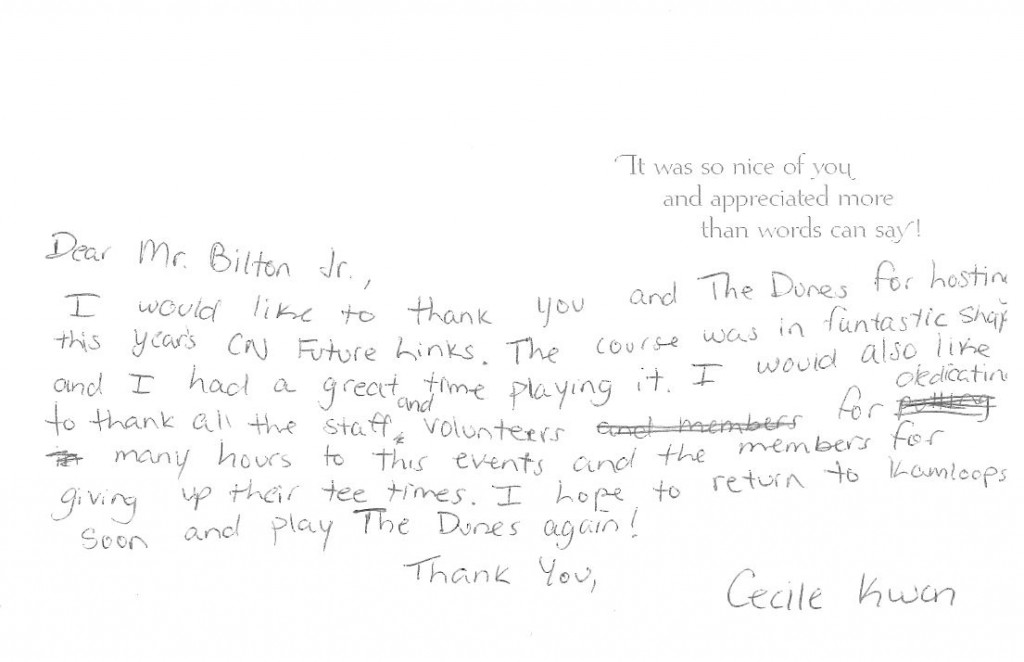 It was so nice of you
and appreciated more
than words can say!
Dear Mr. Bilton Jr.,
I would like to thank you and The Dunes for hostin
this year's CN Future Links. The course was in fantastic shap
and I had a great time playing it. I would also like
and dedicatin
to thank all the staff, volunteers and members for putting
many hours to this events and the members for
giving up their tee times. I hope to return to Kamloops
soon and play The Dunes again!
Thank You,
Cecile Kwan